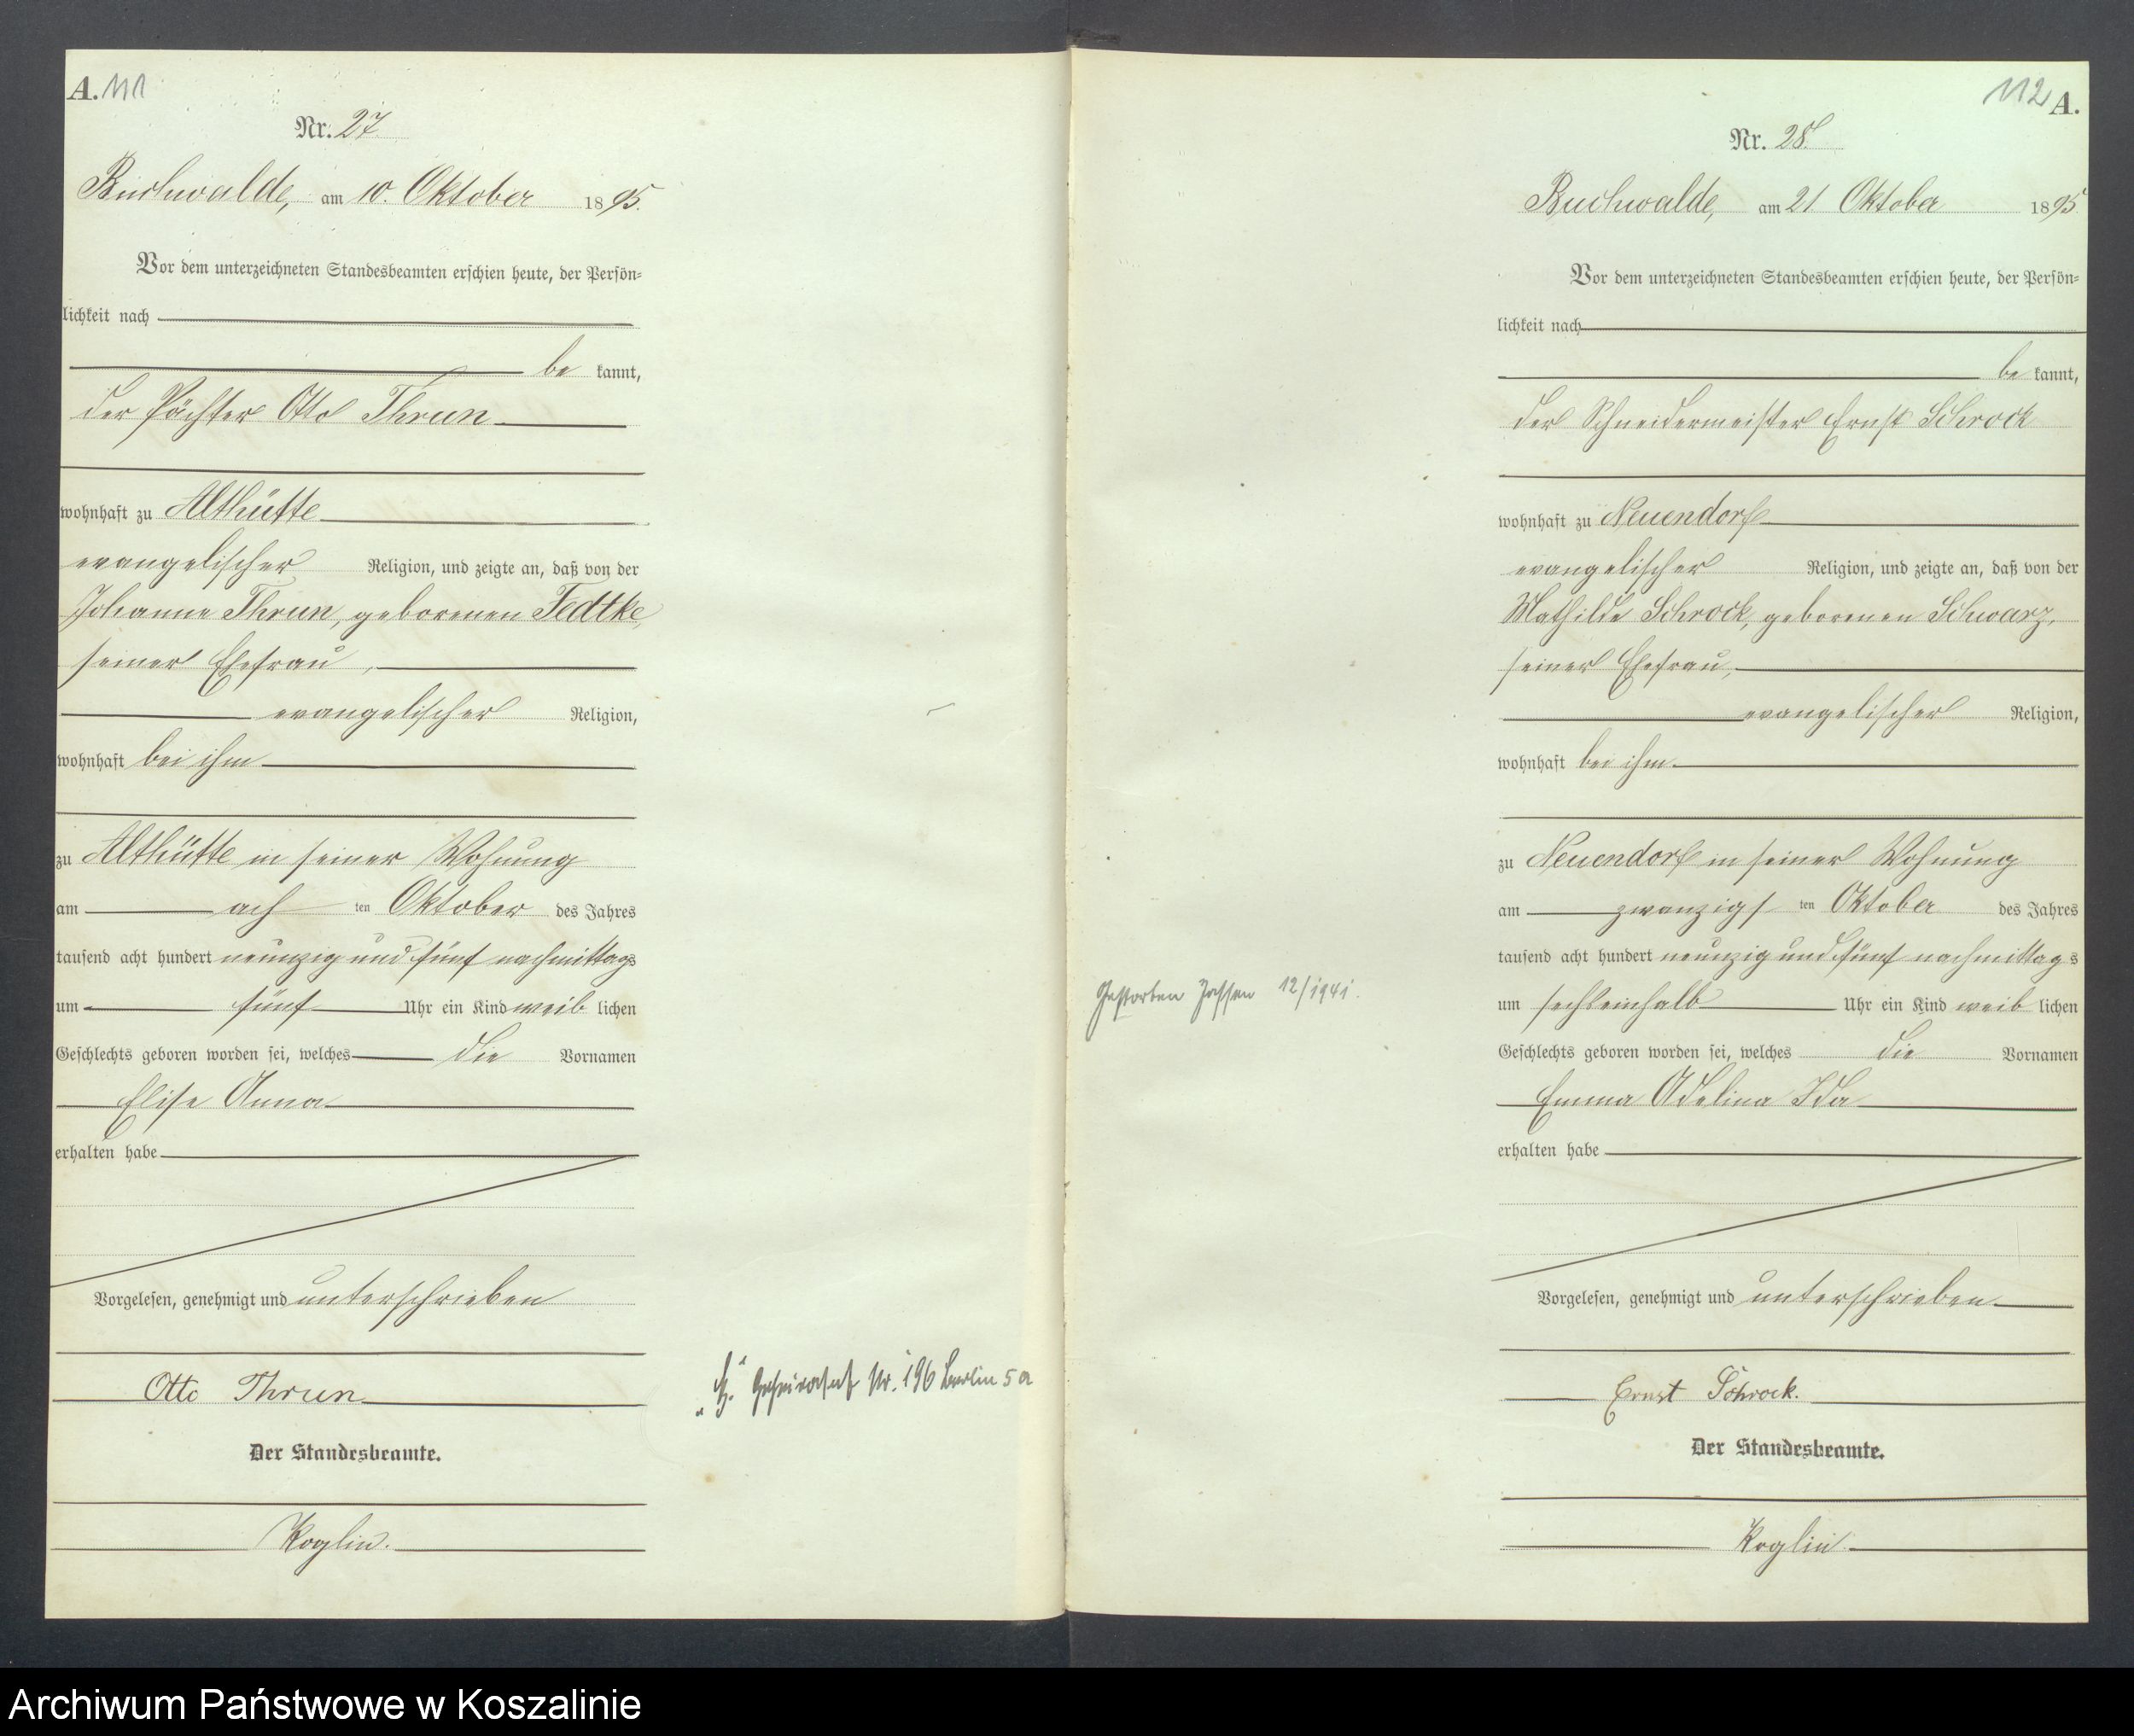 A. 111
Nr. 27
Buchwalde, am 10. Oktober 1895.
Vor dem unterzeichneten Standesbeamten erschien heute, der Persön=
lichkeit nach
be kannt,
der Pächter Otto Thrun
wohnhaft zu Althütte
evangelischer Religion, und zeigte an, daß von der
Johanne Thrun, geborenen Fedtke,
seiner Ehefrau,
evangelischer Religion,
wohnhaft bei ihm
zu Althütte in seiner Wohnung
am ach ten Oktober des Jahres
tausend acht hundert neunzig und fünf nachmittags
um fünf Uhr ein Kind weib lichen
Geschlechts geboren worden sei, welches die Vornamen
Elise Anna
erhalten habe
Vorgelesen, genehmigt und unterschrieben
Otto Thrun
Der Standesbeamte.
Koglin.
Nr. 196 Berlin 5a
112 A.
Nr. 28.
Buchwalde, am 21 Oktober 1895
Vor dem unterzeichneten Standesbeamten erschien heute, der Persön=
lichkeit nach
be kannt,
der Schneidermeister Ernst Schrock
wohnhaft zu Neuendorf
evangelischer Religion, und zeigte an, daß von der
Mathilde Schrock, geborenen Schwarz,
seiner Ehefrau,
evangelischer Religion,
wohnhaft bei ihm
zu Neuendorf in seiner Wohnung
am zwanzigs ten Oktober des Jahres
tausend acht hundert neunzig und fünf nachmittag s
um sechseinhalb Uhr ein Kind weib lichen
Geschlechts geboren worden sei, welches die Vornamen
Emma Adelina Ida
erhalten habe
Vorgelesen, genehmigt und unterschrieben
Ernst Schrock.
Der Standesbeamte.
Koglin
Gestorben 12/1941.
Archiwum Państwowe w Koszalinie